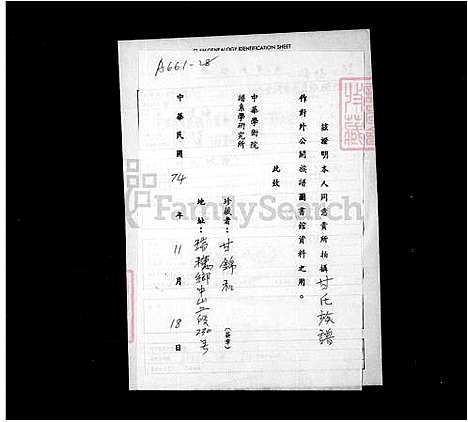 CLAN GENEALOGY IDENTIFICATION SHEET
A661-28
茲證明本人同意貴所拍攝甘氏族譜
作對外公開族譜圖書館資料之用。
此致
中華學術院
譜系學研究所
珍藏者：甘錦和(簽章)
地址：瑞穗鄉中山二段230号
中華民國74年11月18日
FamilySearch